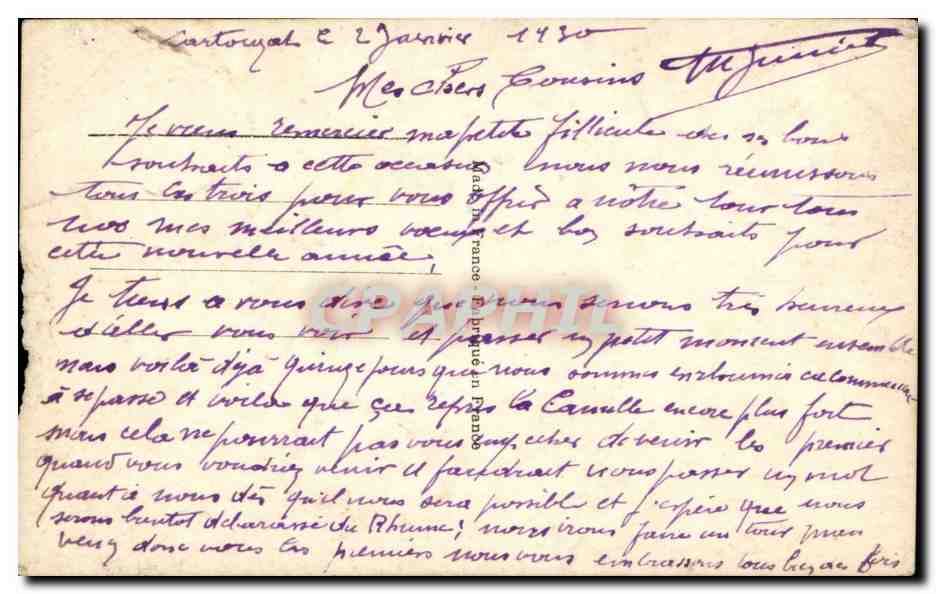 le 2 Janvier 1930
Mes chers Cousins
Je viens remercier ma petite filleule de ses bons
souhaits a cette occasion nous nous réunissons
tous les trois pour vous offrir a nôtre tour tous
nos mes meilleurs voeux et bon souhaits pour
cette nouvelle année,
Je tiens a vous dire que nous serions très heureux
d'aller vous voir et passer un petit moment ensemble
mais voilà déjà quinze jours que nous sommes enrhumés ca commence
à se passé et voila que ça repris la Camille encore plus fort
mais cela ne pourrait pas vous empecher de venir les premier
quand vous voudriez venir il faudrait nous passer un mot
quant à nous dès qu'il nous sera possible et j'espère que nous
serons bientot débarassé du Rhume, nous irons faire un tour
venez donc vous les premiers nous vous embrassons tous bien des fois
Made in France - Fabriqué en France
CPAPHIL